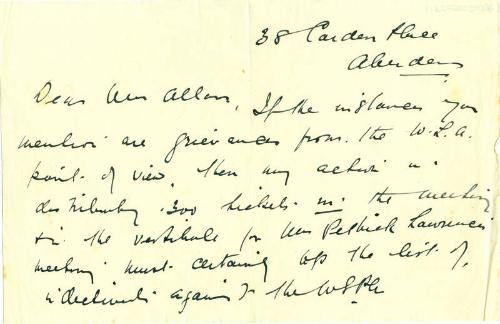 38 Carden Place
Aberdeen
Dear Mrs Allan, If the instances you
mention are grievances from the W.L.A.
point of view, then my action in
distributing 300 tickets in the meeting
& in the vestibule for Mrs Pethick Lawrence's
meeting must certainly top the list of
indictments against the WSPU